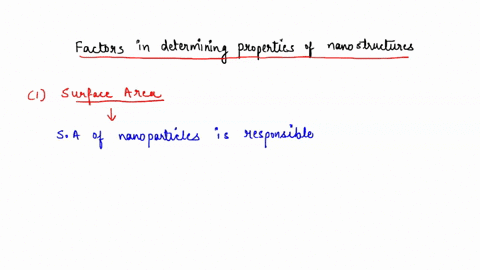 Factors in determining properties of nanostructures
(1) Surface Area
S.A of nanoparticles is responsible